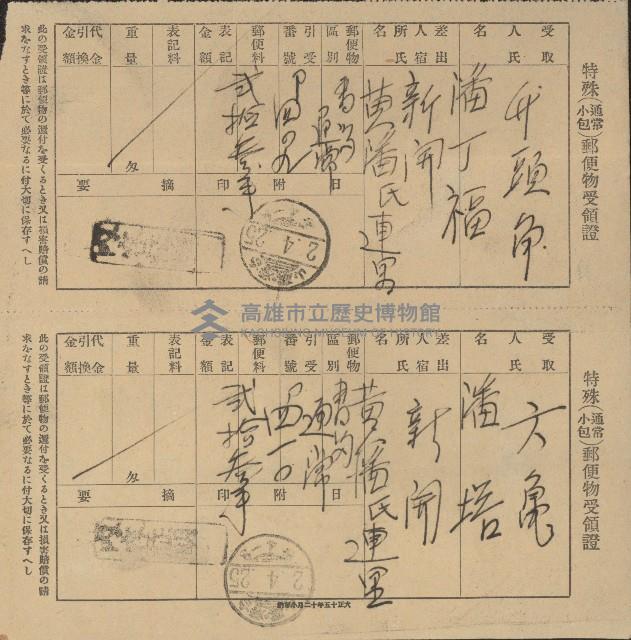 特殊(通常小包)郵便物受領證
受取人氏名
潘丁福
差出人宿所氏名
新開
黄潘氏連里
郵便物區別
書留
通常
引受番號
郵便料
表記金額
貳拾参
表記料
重量
匁
代金引換金額
日附印
摘要
2.4.25
此の受領證は郵便物の還付を受くるとき又は損害賠償の請
求をなすとき等に於て必要なるに付大切に保存すへし
高雄市立歷史博物館
KAOHSIUNG MUSEUM OF HISTORY
特殊(通常小包)郵便物受領證
受取人氏名
六亀
潘塔
差出人宿所氏名
新開
黄潘氏連里
郵便物區別
書留
通常
引受番號
郵便料
表記金額
貳拾参
表記料
重量
匁
代金引換金額
日附印
摘要
2.4.25
此の受領證は郵便物の還付を受くるとき又は損害賠償の請
求をなすとき等に於て必要なるに付大切に保存すへし